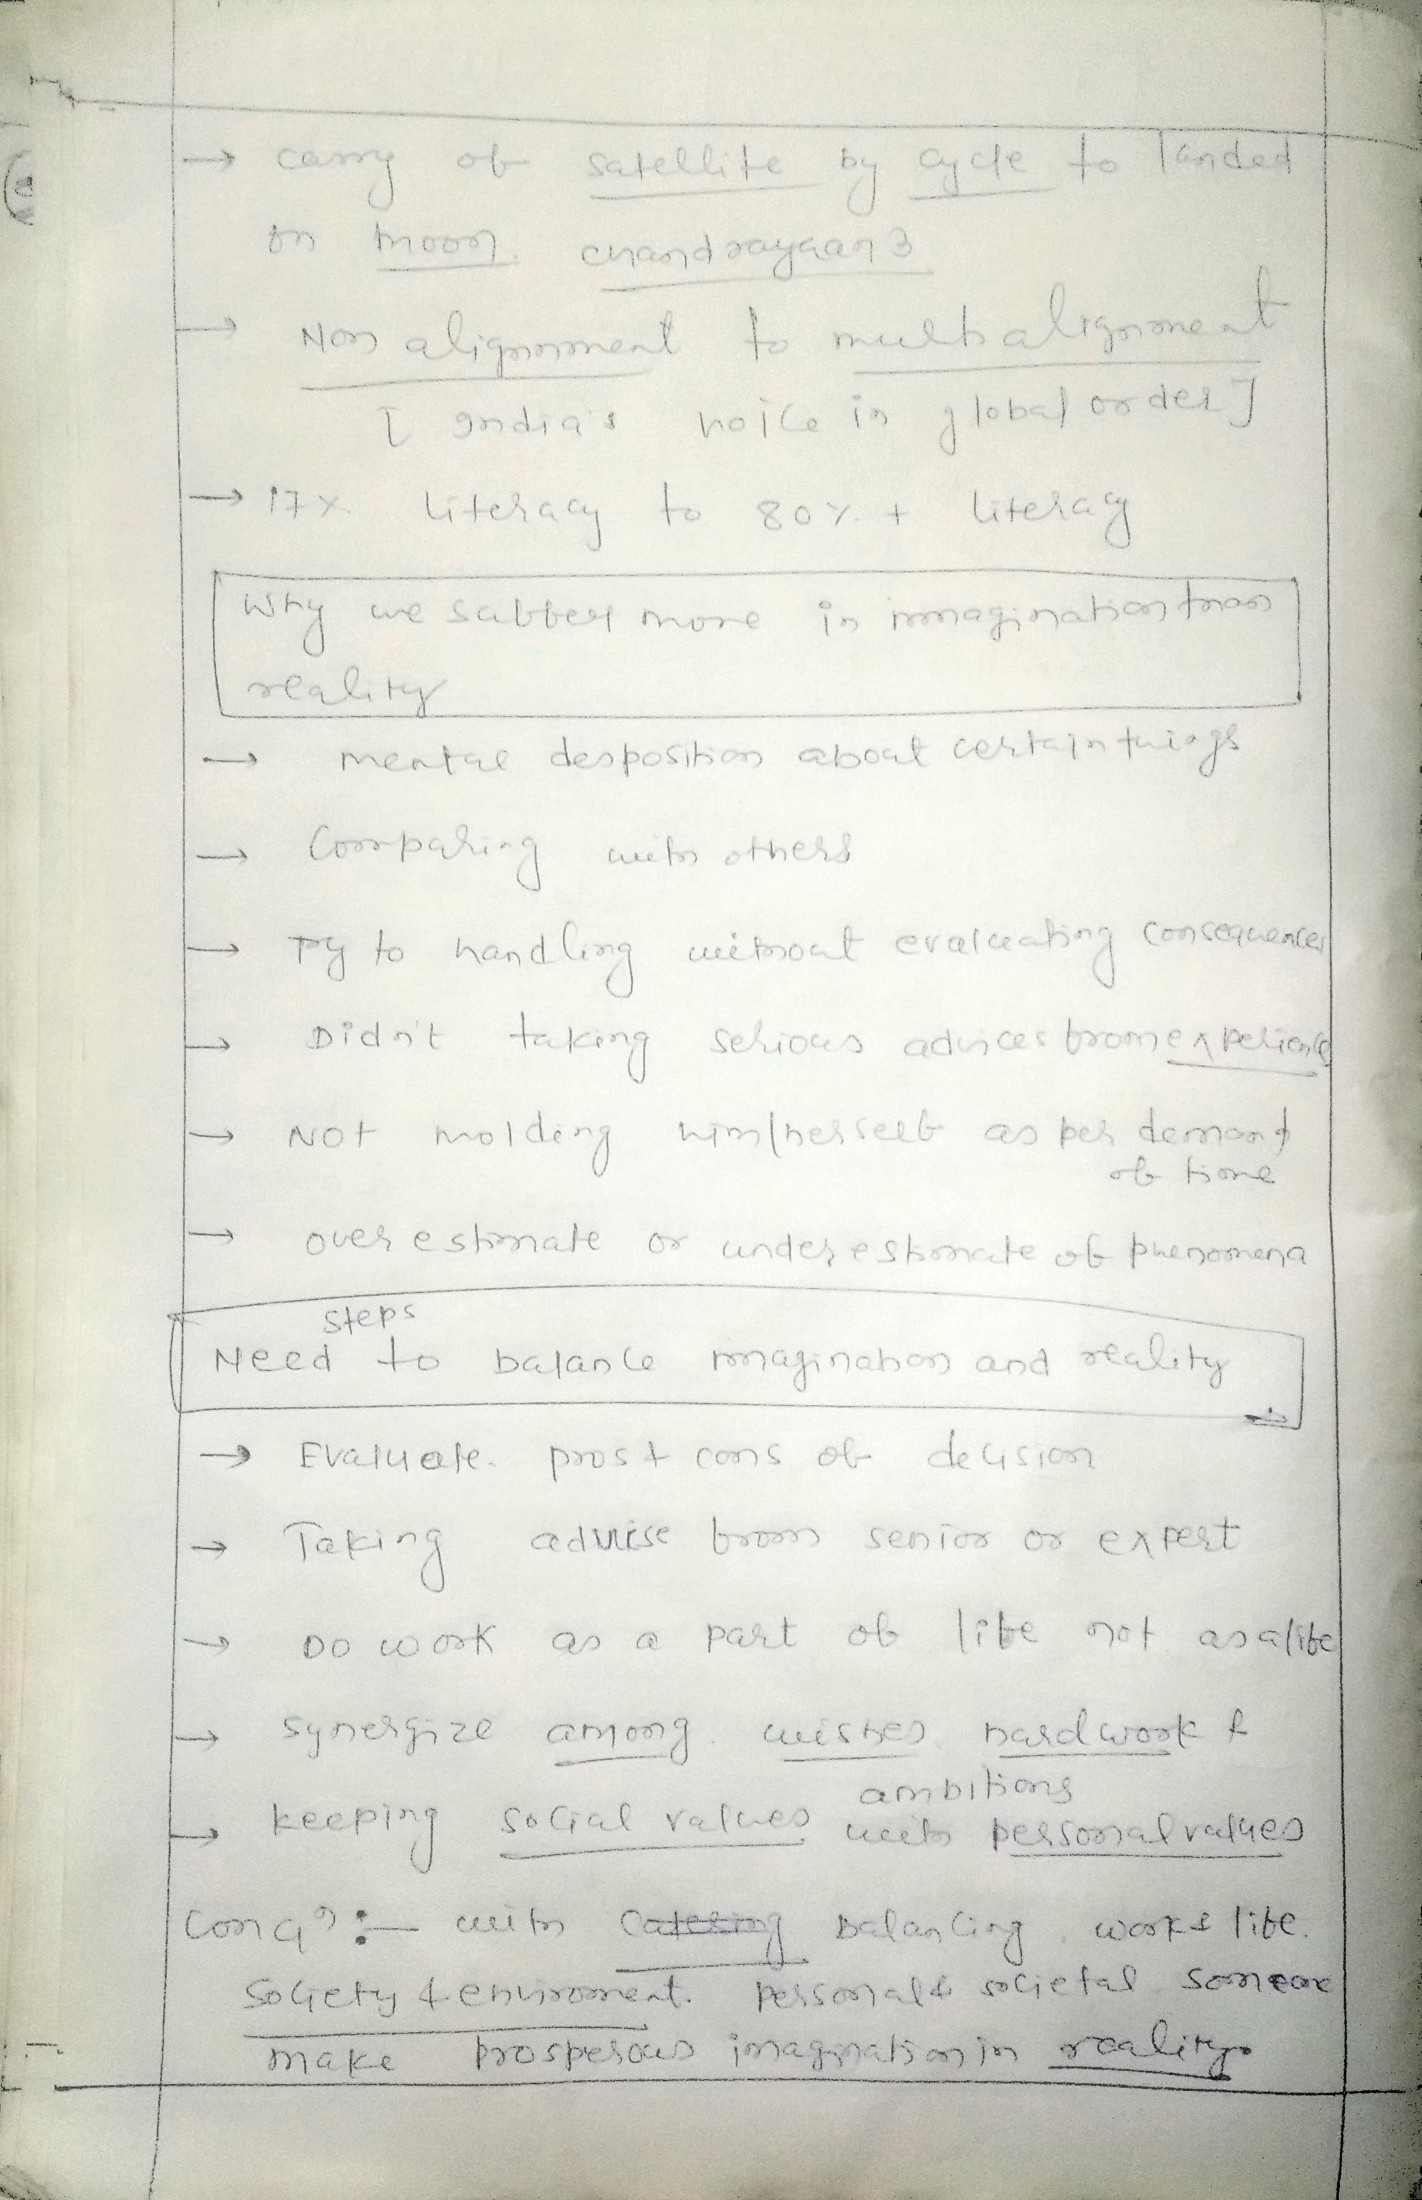 → carry of satellite by cycle to landed
on moon. chandrayaan 3
→ Non alignment to multialignment
[ India's voice in global order ]
→ 17% literacy to 80% + literacy
Why we suffer more in imagination than
reality
→ mental desposition about certain things
→ Comparing with others
→ Try to handling without evaluating consequences
→ Didn't taking serious advices from experience
→ Not molding him/herself as per demand
of time
→ over estimate or underestimate of phenomena
steps
Need to balance imagination and reality
→ Evaluate pros & cons of decision
→ Taking advise from senior or expert
→ Do work as a part of life not as a life
→ synergize among wishes hardwork &
ambitions
→ keeping social values with personal values
Conclⁿ :- with Catering balancing work & life.
Society & enviroment. personal & societal someone
make prosperous imagination in reality.